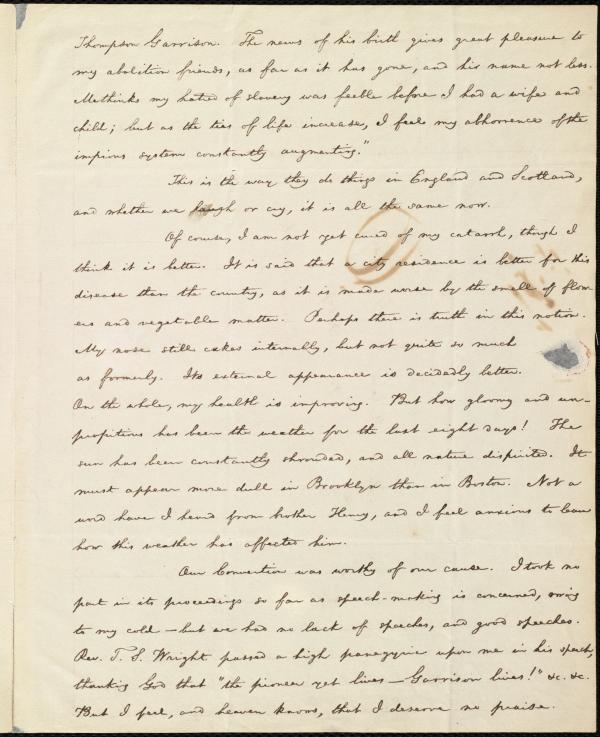 Thompson Garrison. The news of his birth gives great pleasure to
my abolition friends, as far as it has gone, and his name not less.
Methinks my hatred of slavery was feeble before I had a wife and
child; but as the ties of life increase, I feel my abhorrence of the
impious system constantly augmenting."
This is the way they do things in England and Scotland,
and whether we laugh or cry, it is all the same now.
Of course, I am not yet cured of my catarrh, though I
think it is better. It is said that a city residence is better for this
disease than the country, as it is made worse by the smell of flow
ers and vegetable matter. Perhaps there is truth in this notion.
My nose still cakes internally, but not quite so much
as formerly. Its external appearance is decidedly better.
On the whole, my health is improving. But how gloomy and un-
propitious has been the weather for the last eight days! The
sun has been constantly shrouded, and all nature dispirited. It
must appear more dull in Brooklyn than in Boston. Not a
word have I heard from brother Henry, and I feel anxious to learn
how this weather has affected him.
Our Convention was worthy of our cause. I took no
part in its proceedings so far as speech-making is concerned, owing
to my cold — but we had no lack of speeches, and good speeches.
Rev. T. S. Wright passed a high panegyric upon me in his speech,
thanking God that "the pioneer yet lives — Garrison lives!" &c. &c.
But I feel, and heaven knows, that I deserve no praise.